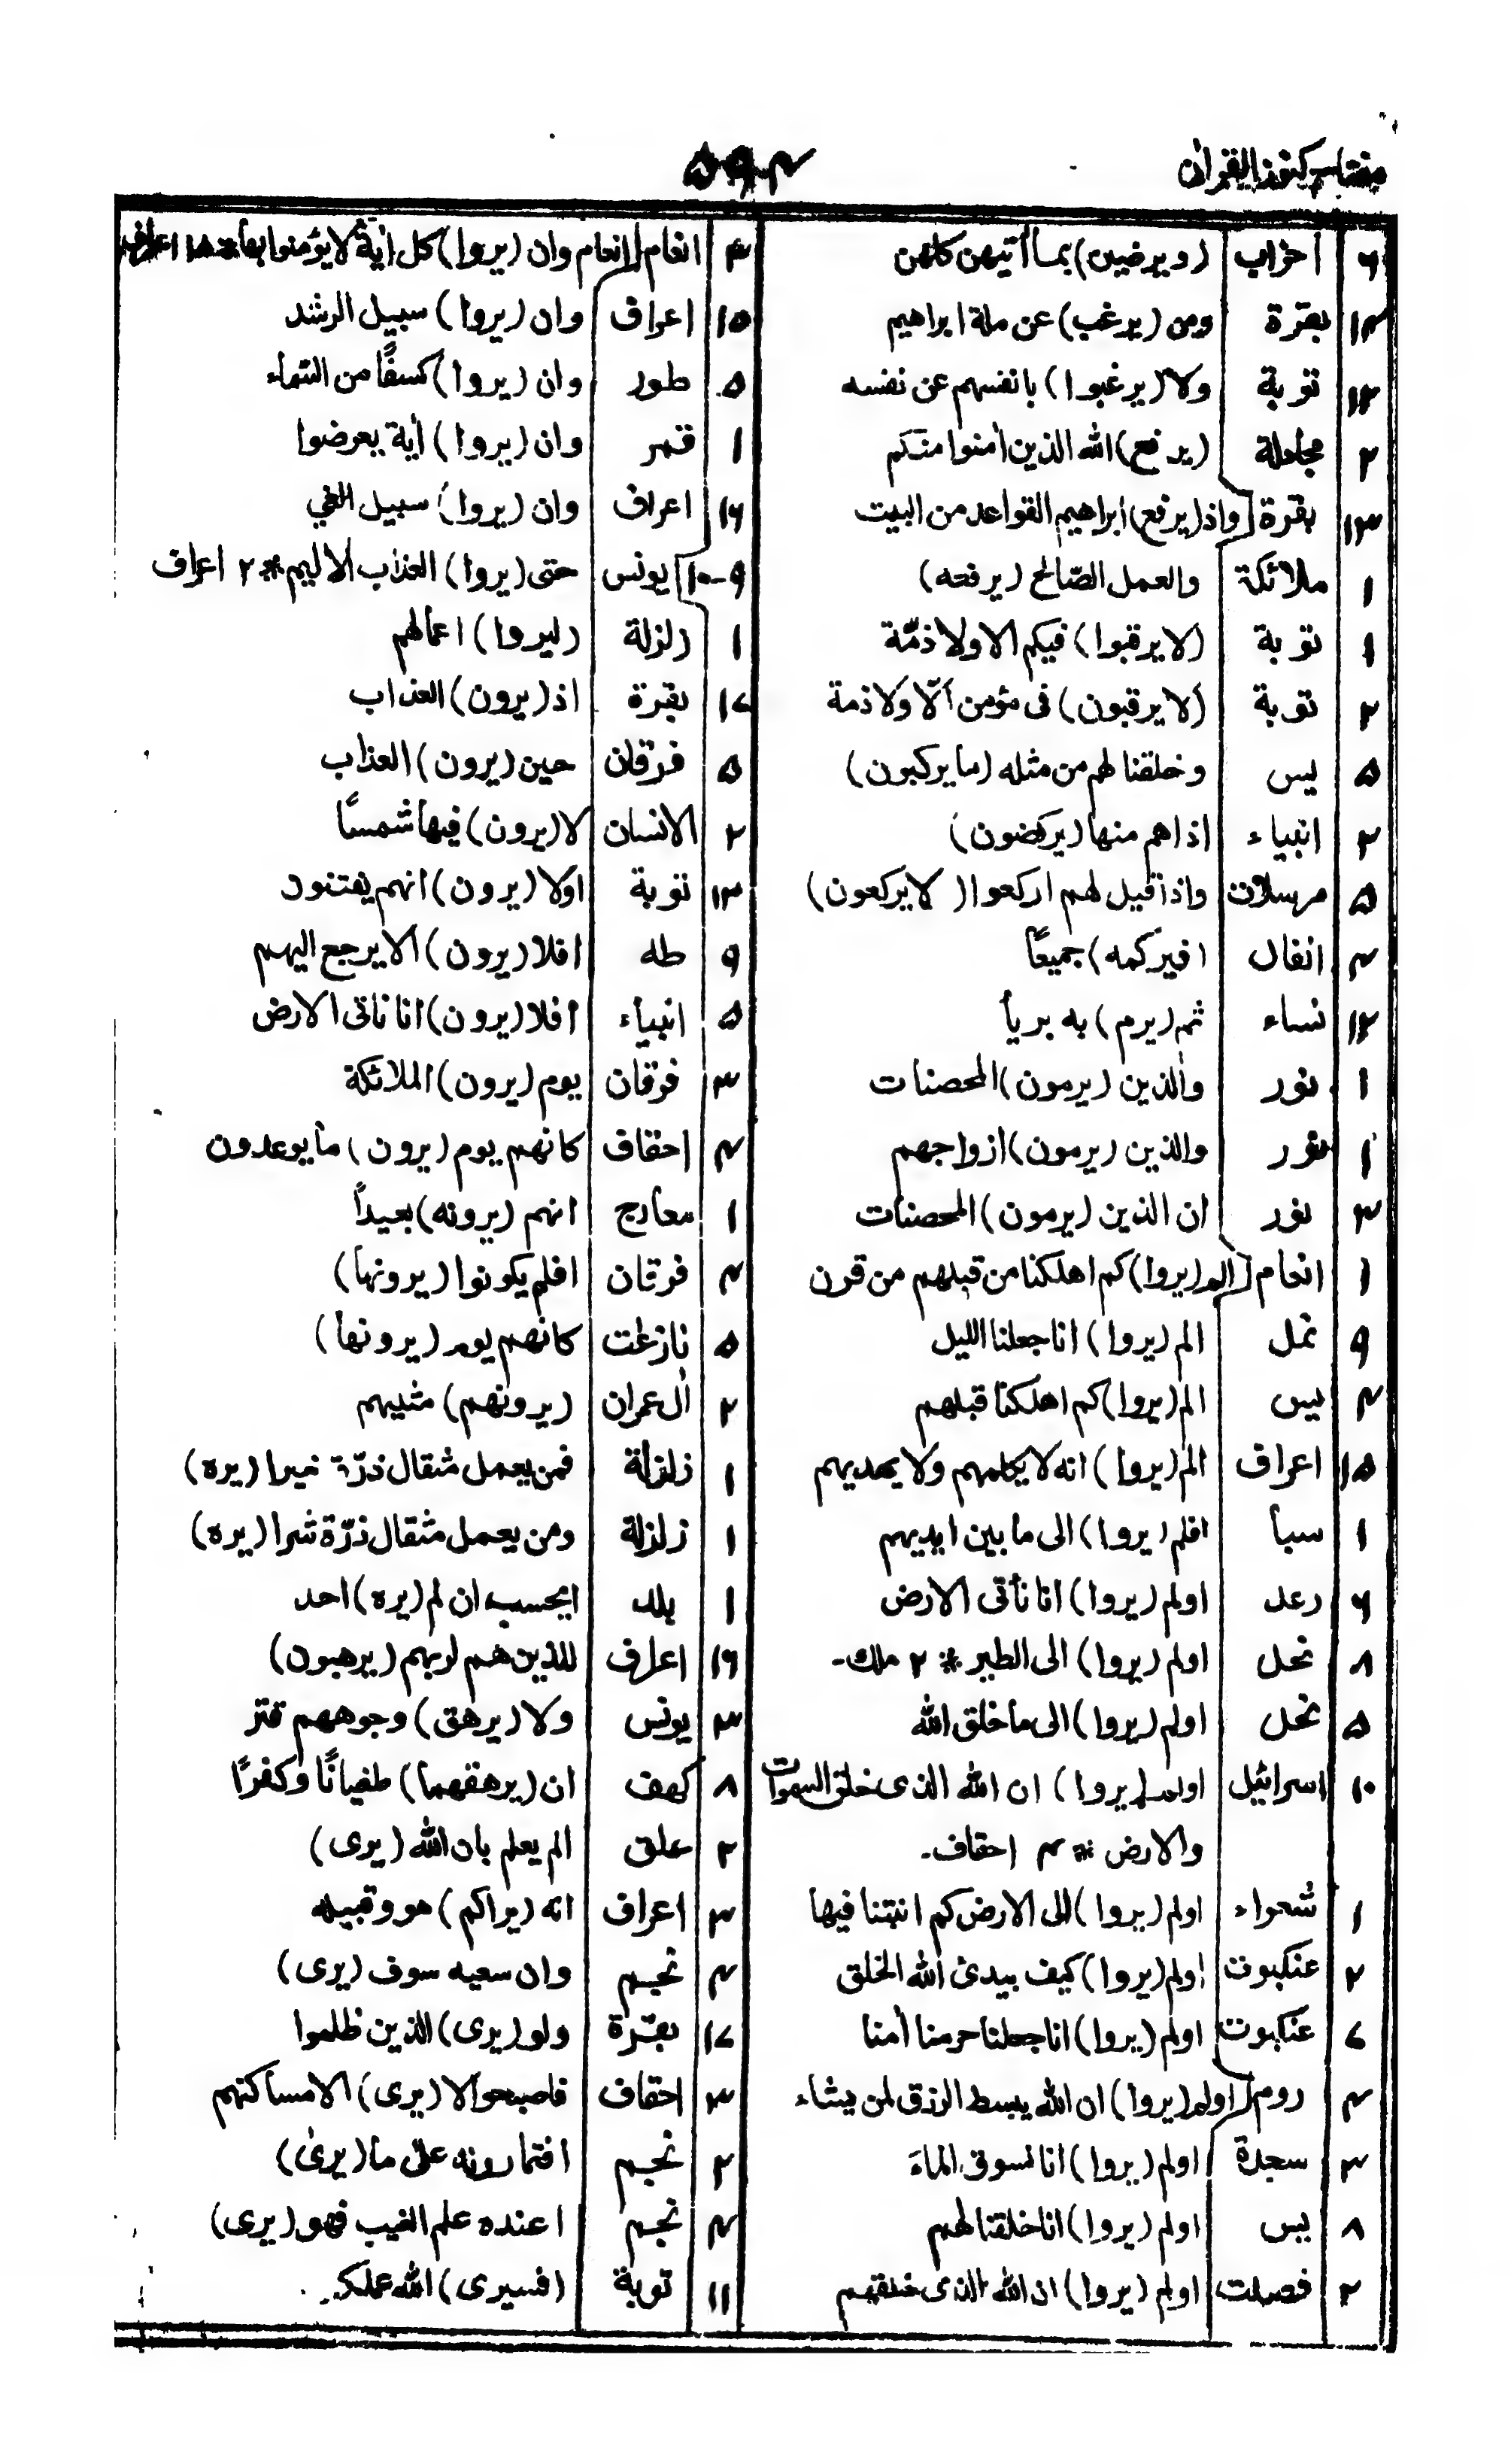 مفتاح كنوز القرأن
۵۹۴
۶ احزاب (ويرضين) بمأ أتيهن كلهن
۱۴ بقرة ومن (يرغب) عن ملة ابراهيم
۱۴ توبة ولا (يرغبوا) بانفسهم عن نفسه
۲ مجادلة (يرفع) الله الذين أمنوا منكم
۱۳ بقرة واذ (يرفع) ابراهيم القواعد من البيت
۱ ملائكة والعمل الصّالح (يرفعه)
۱ توبة (لا يرقبوا) فيكم الا ولا ذمّة
۲ توبة (لا يرقبون) فى مؤمن الّا ولا ذمة
۵ يس وخلقنا لهم من مثله (ما يركبون)
۲ انبياء اذا هم منها (يركضون)
۵ مرسلات واذا قيل لهم اركعوا (لا يركعون)
۴ انفال (فيركمه) جميعًا
۱۴ نساء ثم (يرم) به بريأ
۱ نور والذين (يرمون) المحصنات
۱ نور والذين (يرمون) ازواجهم
۳ نور ان الذين (يرمون) المحصنات
۱ انعام الم (يروا) كم اهلكنا من قبلهم من قرن
۹ نمل الم (يروا) انا جعلنا الليل
۴ يس الم (يروا) كم اهلكنا قبلهم
۱۵ اعراف الم (يروا) انه لا يكلمهم ولا يهديهم
۱ سبأ افلم (يروا) الى ما بين ايديهم
۶ رعد اولم (يروا) انا نأتى الارض
۸ نحل اولم (يروا) الى الطير * ۲ ملك-
۵ نحل اولم (يروا) الى ما خلق الله
۱۰ اسرائيل اولم (يروا) ان الله الذى خلق السموات
والارض * ۴ احقاف-
۱ شعراء اولم (يروا) الى الارض كم انبتنا فيها
۲ عنكبوت اولم (يروا) كيف يبدئ الله الخلق
۷ عنكبوت اولم (يروا) انا جعلنا حرمنا أمنا
۴ روم اولم (يروا) ان الله يبسط الرزق لمن يشاء
۳ سجدة اولم (يروا) انا نسوق الماءَ
۸ يس اولم (يروا) انا خلقنا لهم
۲ فصلت اولم (يروا) ان الله الذى خلقهم
۳ انعام وان (يروا) كل أية لا يؤمنوا بها
۱۵ اعراف وان (يروا) سبيل الرشد
۵ طور وان (يروا) كسفًا من السّماء
۱ قمر وان (يروا) أية يعرضوا
۱۶ اعراف وان (يروا) سبيل الغي
۹-۱۰ يونس حتى (يروا) العذاب الاليم * ۲ اعراف
۱ زلزلة (ليروا) اعمالهم
۱۷ بقرة اذ (يرون) العذاب
۵ فرقان حين (يرون) العذاب
۲ الانسان لا (يرون) فيها شمسًا
۱۳ توبة اولا (يرون) انهم يفتنون
۹ طه افلا (يرون) الا يرجع اليهم
۵ انبياء افلا (يرون) انا ناتى الارض
۳ فرقان يوم (يرون) الملائكة
۴ احقاف كانهم يوم (يرون) ما يوعدون
۱ معارج انهم (يرونه) بعيداً
۴ فرقان افلم يكونوا (يرونها)
۵ نازعٰت كانهم يوم (يرونها)
۲ اٰل عمران (يرونهم) مثليهم
۱ زلزلة فمن يعمل مثقال ذرّة خيرا (يره)
۱ زلزلة ومن يعمل مثقال ذرّة شرا (يره)
۱ بلد ايحسب ان لم (يره) احد
۱۹ اعراف للذين هم لربهم (يرهبون)
۳ يونس ولا (يرهق) وجوههم قتر
۸ كهف ان (يرهقهما) طغيانًا وكفرًا
۲ علق الم يعلم بان الله (يرى)
۳ اعراف انه (يراكم) هو وقبيله
۴ نجم وان سعيه سوف (يرى)
۱۷ بقرة ولو (يرى) الذين ظلموا
۳ احقاف فاصبحوا لا (يرى) الا مساكنهم
۲ نجم افتمارونه على ما (يرىٰ)
۴ نجم اعنده علم الغيب فهو (يرى)
۱۱ توبة (فسيرى) الله عملكم